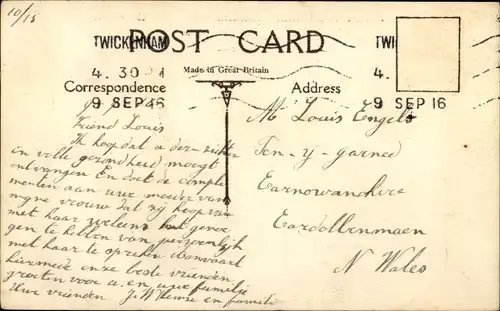 10/15
TWICKENHAM
POST CARD
TWI
4. 30 PM
Made in Great Britain
4.
Correspondence
Address
9 SEP 16
9 SEP 16
Friend Louis
Ik hoop dat u der-
en volle gezondheid moogt
ontvangen En doet de comple
menten aan uwe moeder van
myne vrouw dat zij hoop van
met haar welens het genoe
gen te hebben van persoonlijk
met haar te spreken Aanvaart
hiermede onze beste vrienden
groeten voor u. en uwe familje
Uwe vrienden J. W en famili
Mr Louis Engels
Ten-y-garned
Carnowanchire
Eardollenmaen
N Wales